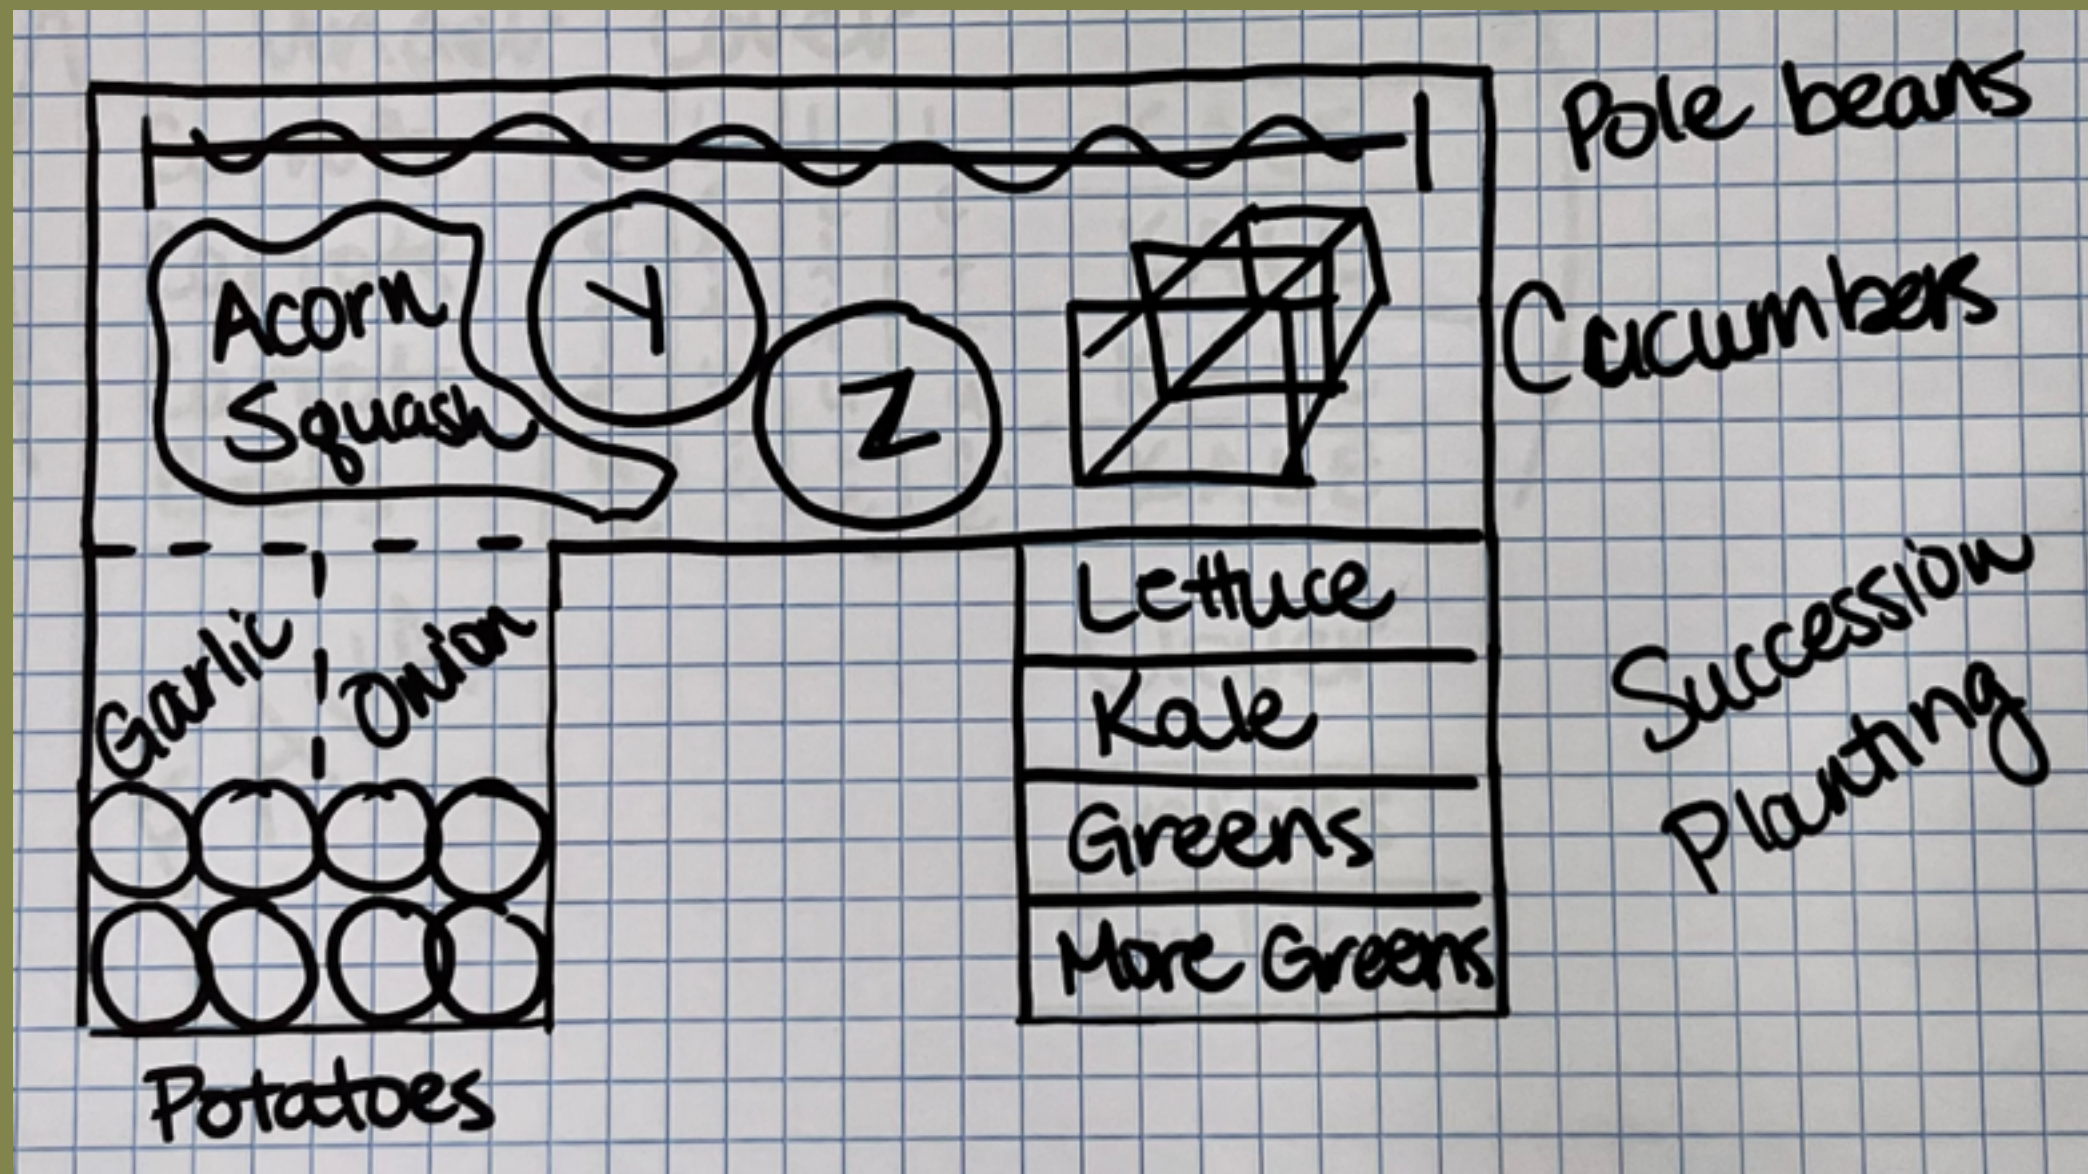 Pole beans
Acorn
Squash
Y
Z
Cucumbers
Garlic
Onion
Lettuce
Kale
Greens
More Greens
Succession
Planting
Potatoes